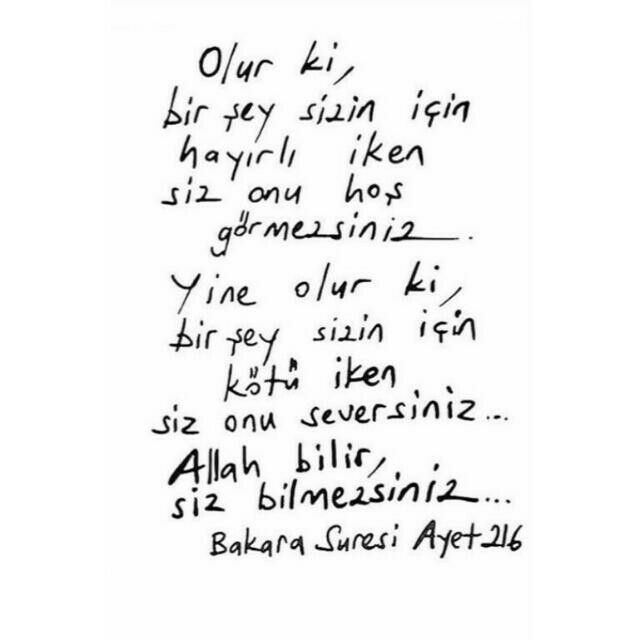 Olur ki,
bir şey sizin için
hayırlı iken
siz onu hoş
görmezsiniz.
Yine olur ki,
bir şey sizin için
kötü iken
siz onu seversiniz...
Allah bilir,
siz bilmezsiniz...
Bakara Suresi Ayet 216